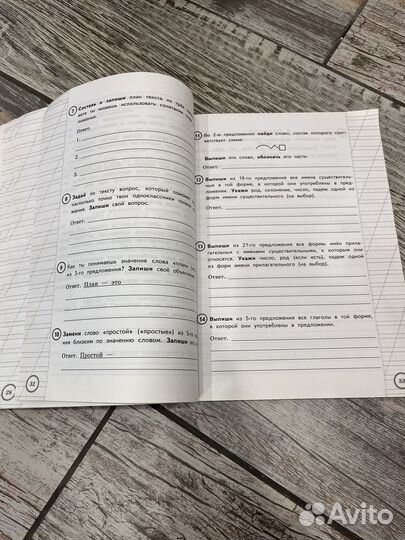 7 Составь и запиши план текста из трёх
вете ты можешь использовать сочетания
ложения.
Ответ.
1.
2.
3.
8 Задай по тексту вопрос, который поможет
насколько точно твои одноклассники поняли
мание. Запиши свой вопрос.
Ответ.
9 Как ты понимаешь значение слова «план»
из 3-го предложения? Запиши своё объяснение.
Ответ. План — это
10 Замени слово «простой» («простые») из 5-го
ния близким по значению словом. Запиши это
Ответ. Простой —
28
32
11 Во 2-м предложении найди слово, состав которого соот-
ветствует схеме:
Выпиши это слово, обозначь его части.
12 Выпиши из 19-го предложения все имена существитель-
ные в той форме, в которой они употреблены в пред-
ложении. Укажи род, склонение, число, падеж одной
из форм имени существительного (на выбор).
Ответ.
13 Выпиши из 21-го предложения все формы имён прила-
гательных с именами существительными, к которым они
относятся. Укажи число, род (если есть), падеж одной
из форм имени прилагательного (на выбор).
Ответ.
14 Выпиши из 5-го предложения все глаголы в той форме,
в которой они употреблены в предложении.
Ответ.
33
Avito